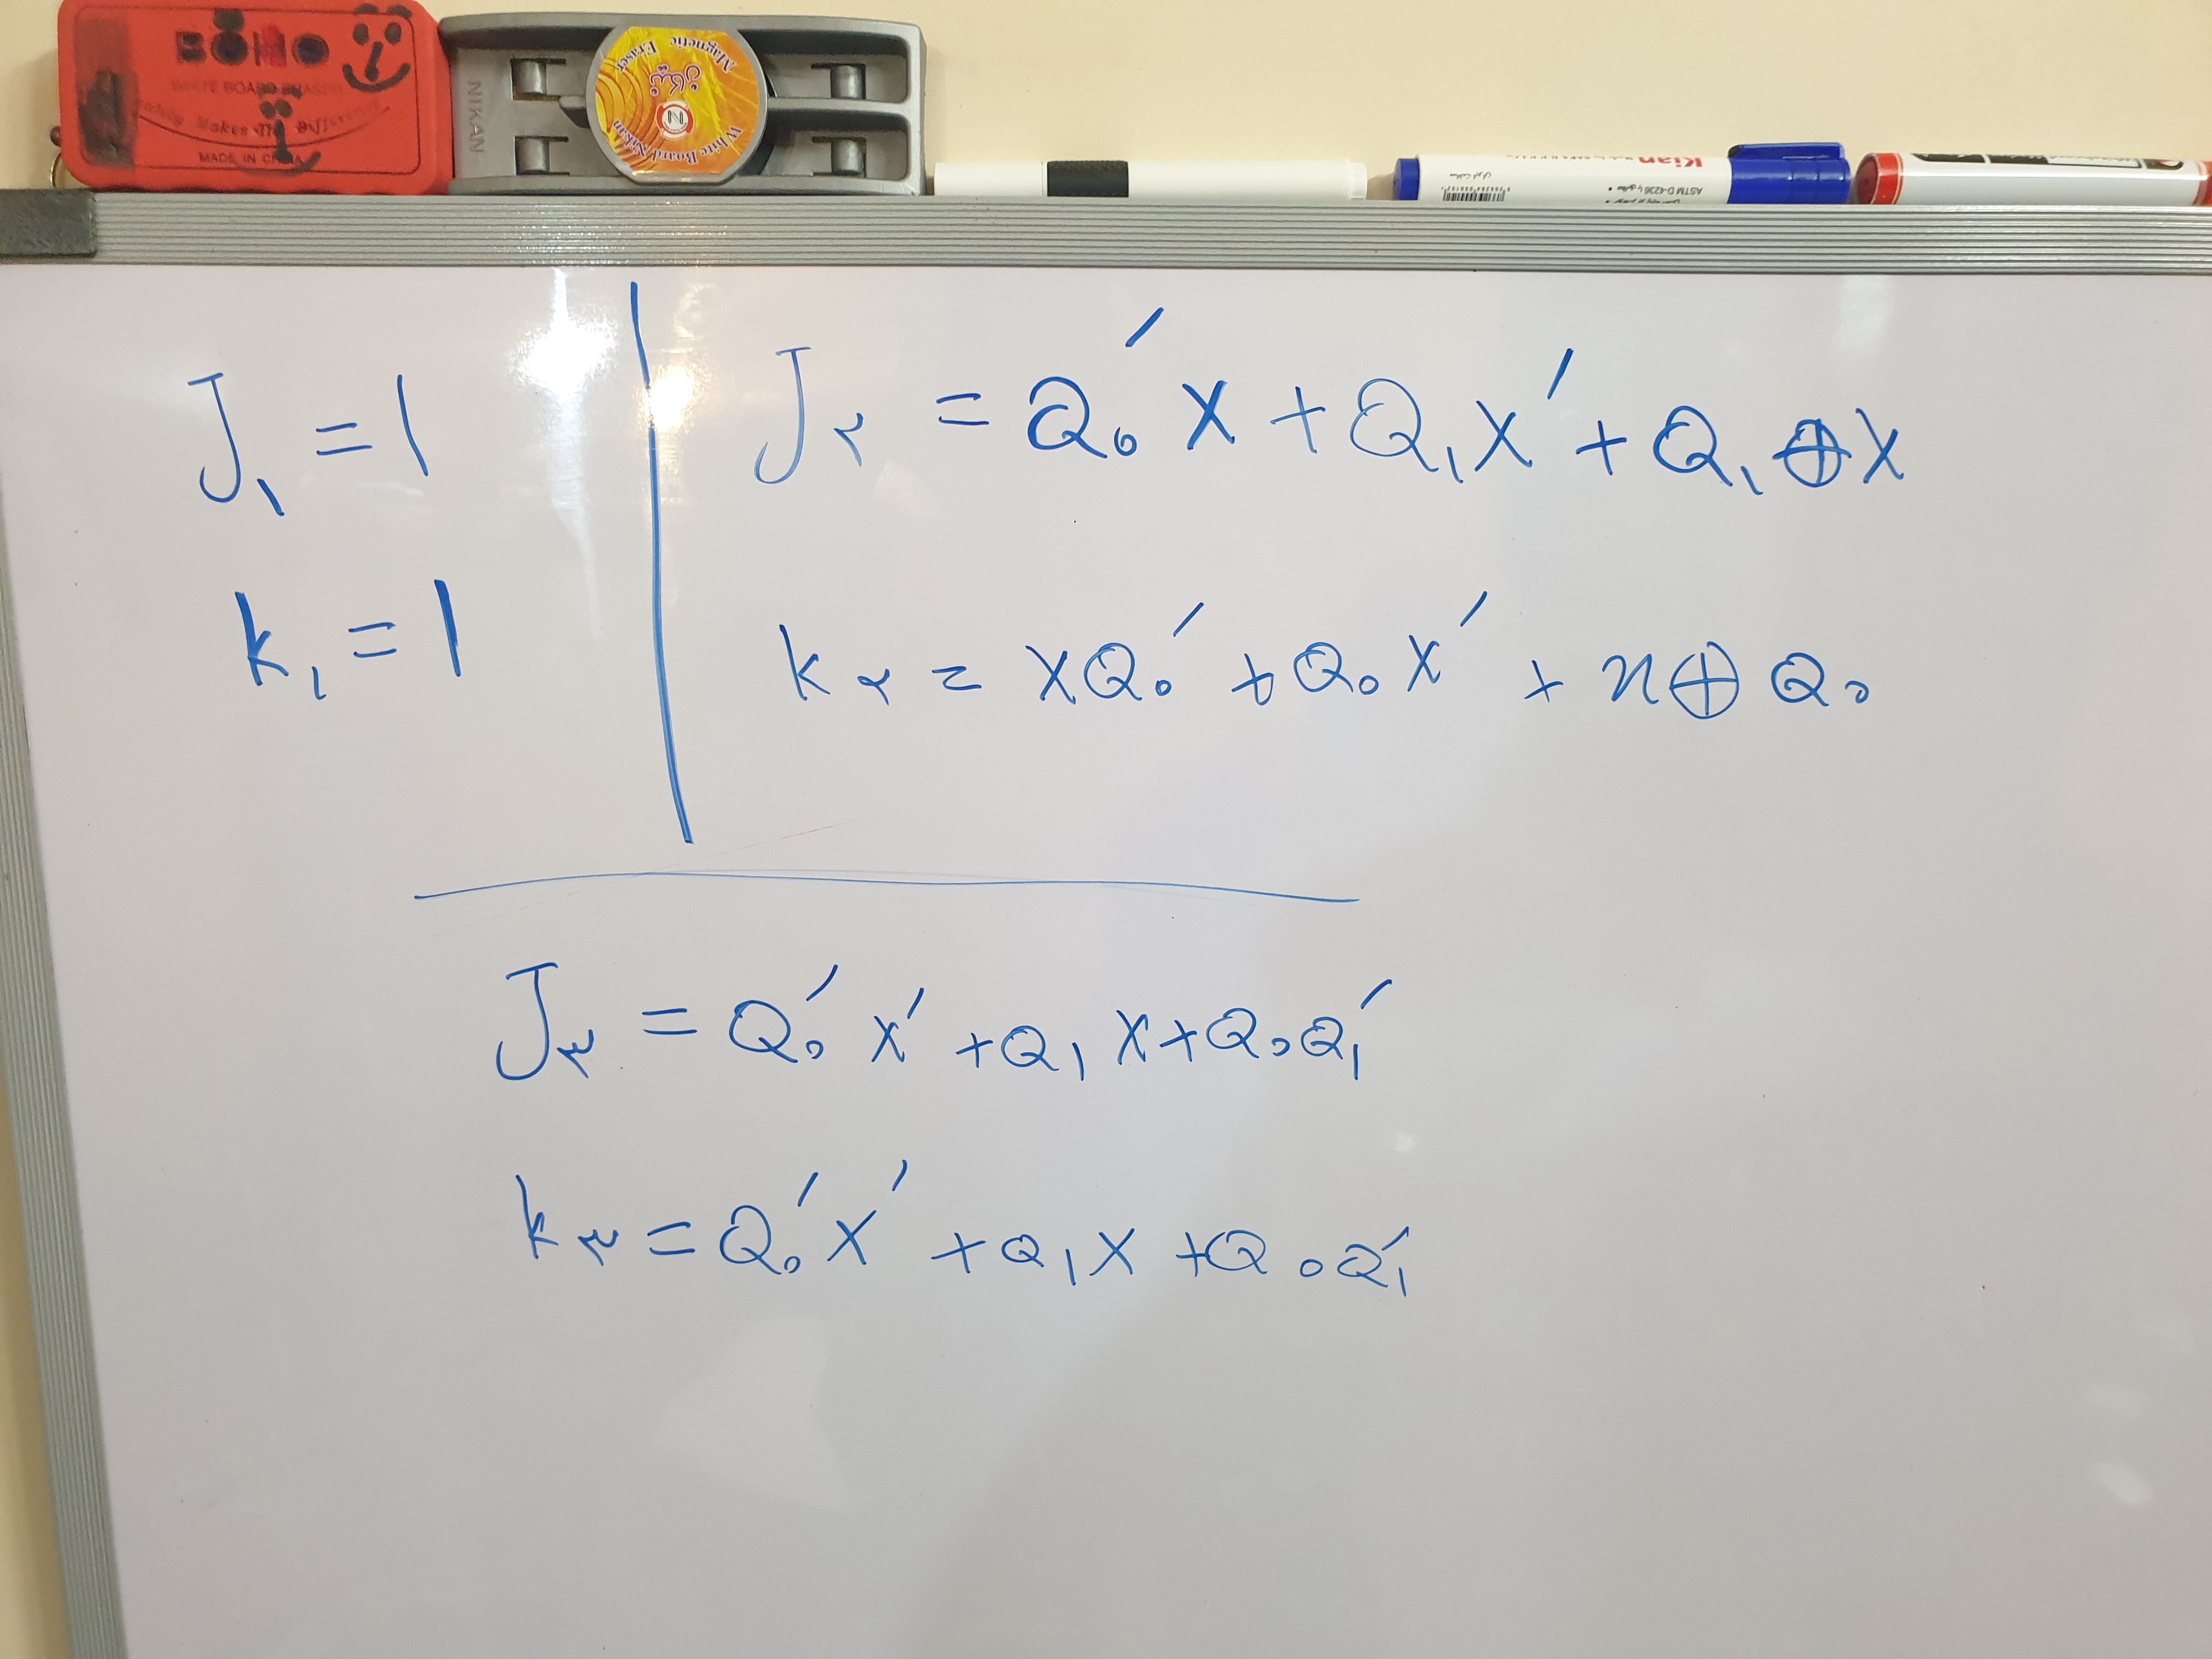 BOHO
WHITE BOARD ERASER
Makes The Difference
MADE IN CHINA
NIKAN
Magnetic Eraser
نیکان
N
White Board Nikan
Kian
ASTM D-4236
J₁ = 1
k₁ = 1
J۲ = Q₀′X + Q₁X′ + Q₁ ⊕ X
k۲ = XQ₀′ + Q₀X′ + x ⊕ Q₀
J۳ = Q₀′X′ + Q₁X + Q₀Q₁′
k۳ = Q₀′X′ + Q₁X + Q₀Q₁′